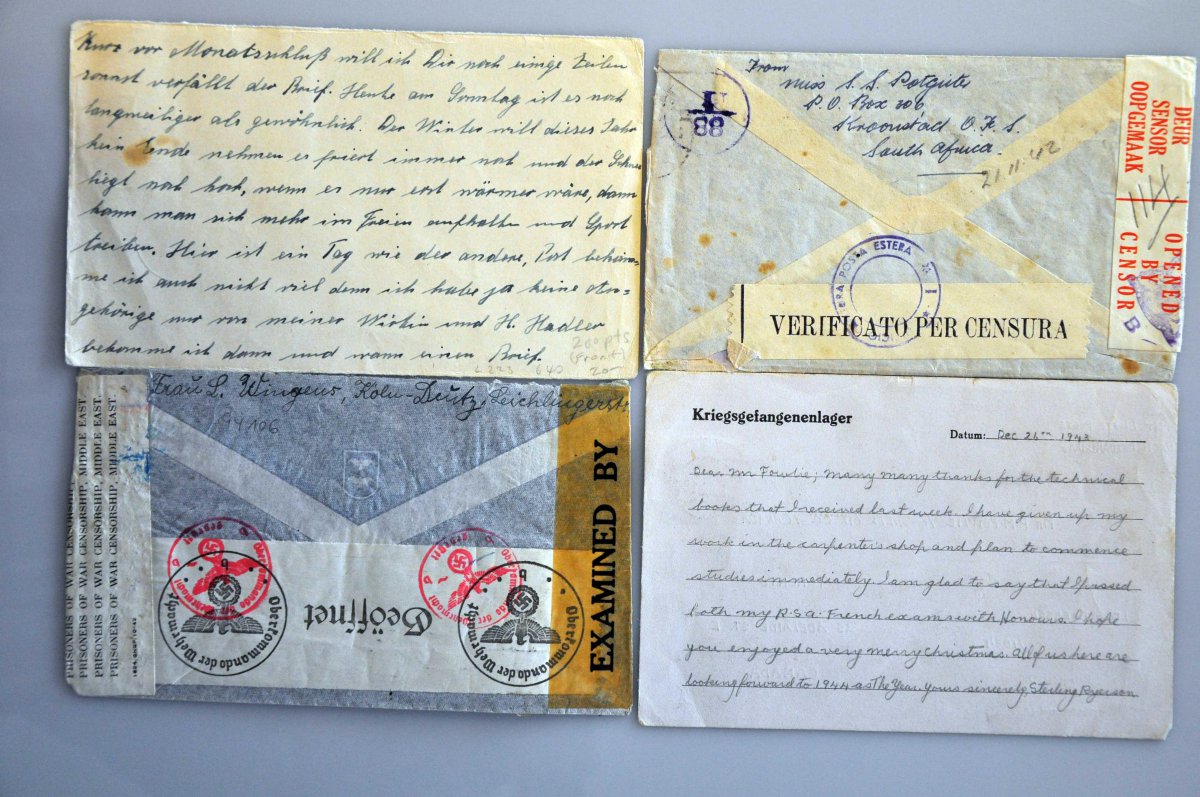 Kurz vor Monatsschluß will ich Dir noch einige Zeilen
sonst verfällt der Brief. Heute am Sonntag ist es noch
langweiliger als gewöhnlich. Der Winter will dieses Jahr
kein Ende nehmen es friert immer noch und der Schnee
liegt noch hoch, wenn es nur erst wärmer wäre, dann
kann man sich mehr im Freien aufhalten und Sport
treiben. Hier ist ein Tag wie der andere, Post bekom-
me ich auch nicht viel denn ich habe ja keine An-
gehörige nur von meiner Wirtin und H. Hadler
bekomme ich dann und wann einen Brief.
200 pts
(front)
L 223 640 20-
From
Miss S. S. Potgieter
P.O. Box 306
Kroonstad O.F.S.
South Africa.
21.11.42
88
DEUR
SENSOR
OOPGEMAAK
OPENED
BY
CENSOR
POSTA ESTERA
VERIFICATO PER CENSURA
Frau L. Wingens, Köln-Deutz,
14106
PRISONERS OF WAR CENSORSHIP, MIDDLE EAST.
PRISONERS OF WAR CENSORSHIP, MIDDLE EAST.
PRISONERS OF WAR CENSORSHIP, MIDDLE EAST.
PRISONERS OF WAR CENSORSHIP, MIDDLE EAST.
Oberkommando der Wehrmacht
b
Geöffnet
Oberkommando der Wehrmacht
b
EXAMINED BY
Kriegsgefangenenlager
Datum: Dec 26th 1943
Dear Mr Fowlie; Many many thanks for the technical
books that I received last week. I have given up my
work in the carpenter's shop and plan to commence
studies immediately. I am glad to say that I passed
both my R.S.A. French exams with Honours. I hope
you enjoyed a very merry christmas. All of us here are
looking forward to 1944 as The Year. Yours sincerely, Sterling Ryerson